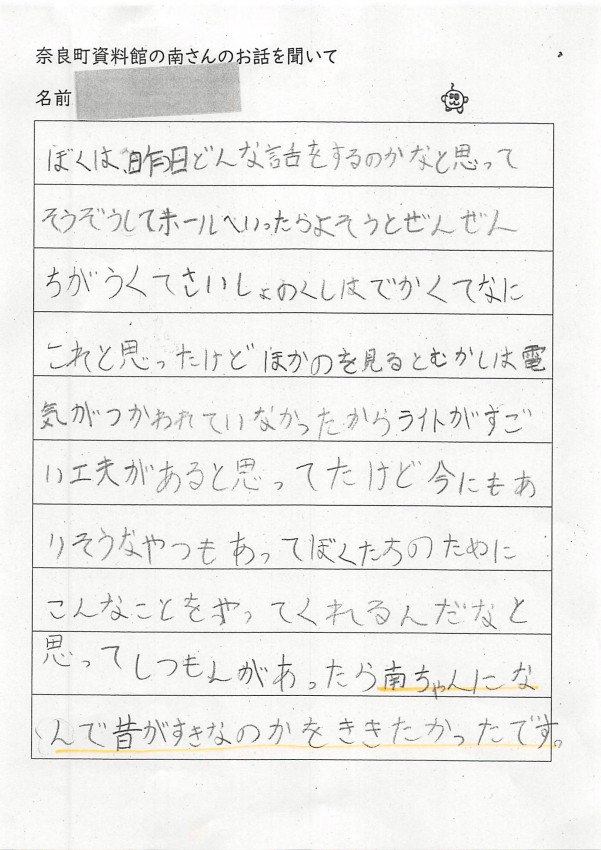 奈良町資料館の南さんのお話を聞いて
名前
ぼくは、昨日どんな話をするのかなと思って
そうぞうしてホールへいったらよそうとぜんぜん
ちがうくてさいしょのくしはでかくてなに
これと思ったけどほかのを見るとむかしは電
気がつかわれていなかったからライトがすご
い工夫があると思ってたけど今にもあ
りそうなやつもあってぼくたちのために
こんなことをやってくれるんだなと
思ってしつもんがあったら南ちゃんにな
んで昔がすきなのかをききたかったです。